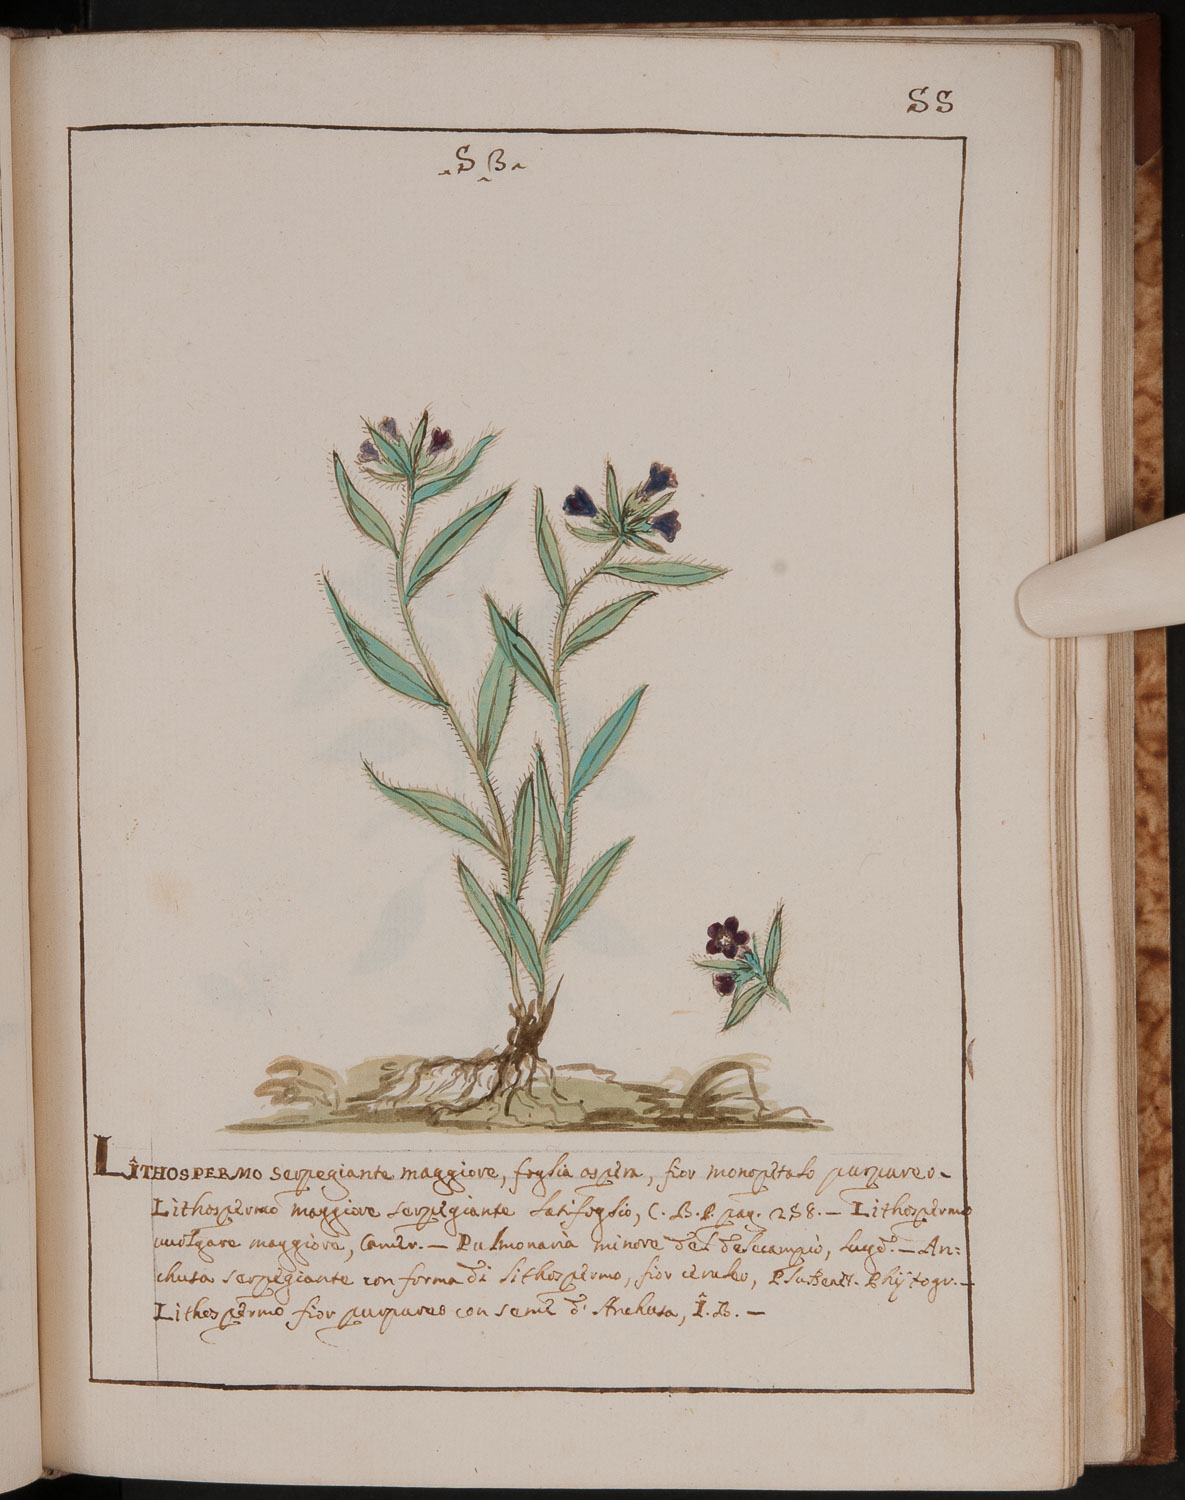 SS
.S B.
LITHOSPERMO serpegiante maggiore, foglia aspera, fior monopetalo purpureo-
Lithospermo maggiore serpegiante latifoglio, C. B. P. pag. 258. — Lithospermo
vuolgare maggiore, Camer. — Pulmonaria minore del delecampio, Lugd. — An=
chusa serpegiante con forma di lithospermo, fior ceruleo, Phÿtogr. —
Lithospermo fior purpureo con seme d' Anchusa, I. B. —